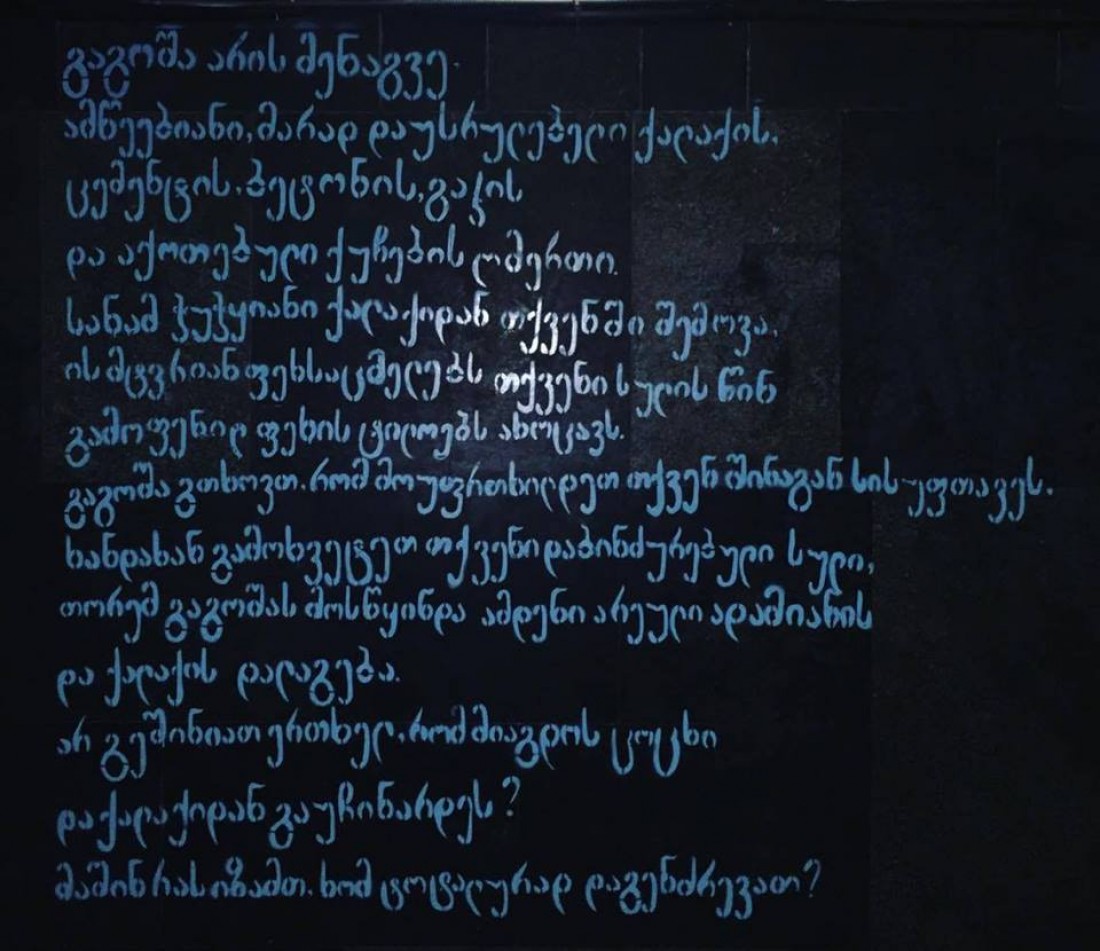 გაგოშა არის მენაგვე.
ამწეებიანი, მარად დაუსრულებელი ქალაქის,
ცემენტის, ბეტონის, გაჯის
და აქოთებული ქუჩების ღმერთი.
სანამ ჭუჭყიანი ქალაქიდან თქვენში შემოვა,
ის მტვრიან ფეხსაცმელებს თქვენი სულის წინ
გამოფენილ ფეხის ტილოებს ახოცავს.
გაგოშა გთხოვთ, რომ მოუფრთხილდეთ თქვენ შინაგან სისუფთავეს.
ხანდახან გამოხვეტეთ თქვენი დაბინძურებული სული,
თორემ გაგოშას მოსწყინდა ამდენი არეული ადამიანის
და ქალაქის დალაგება.
არ გეშინიათ ერთხელ, რომ მიაგდოს ცოცხი
და ქალაქიდან გაუჩინარდეს?
მაშინ რას იზამთ, ხომ ტოტალურად დაგენძრევათ?